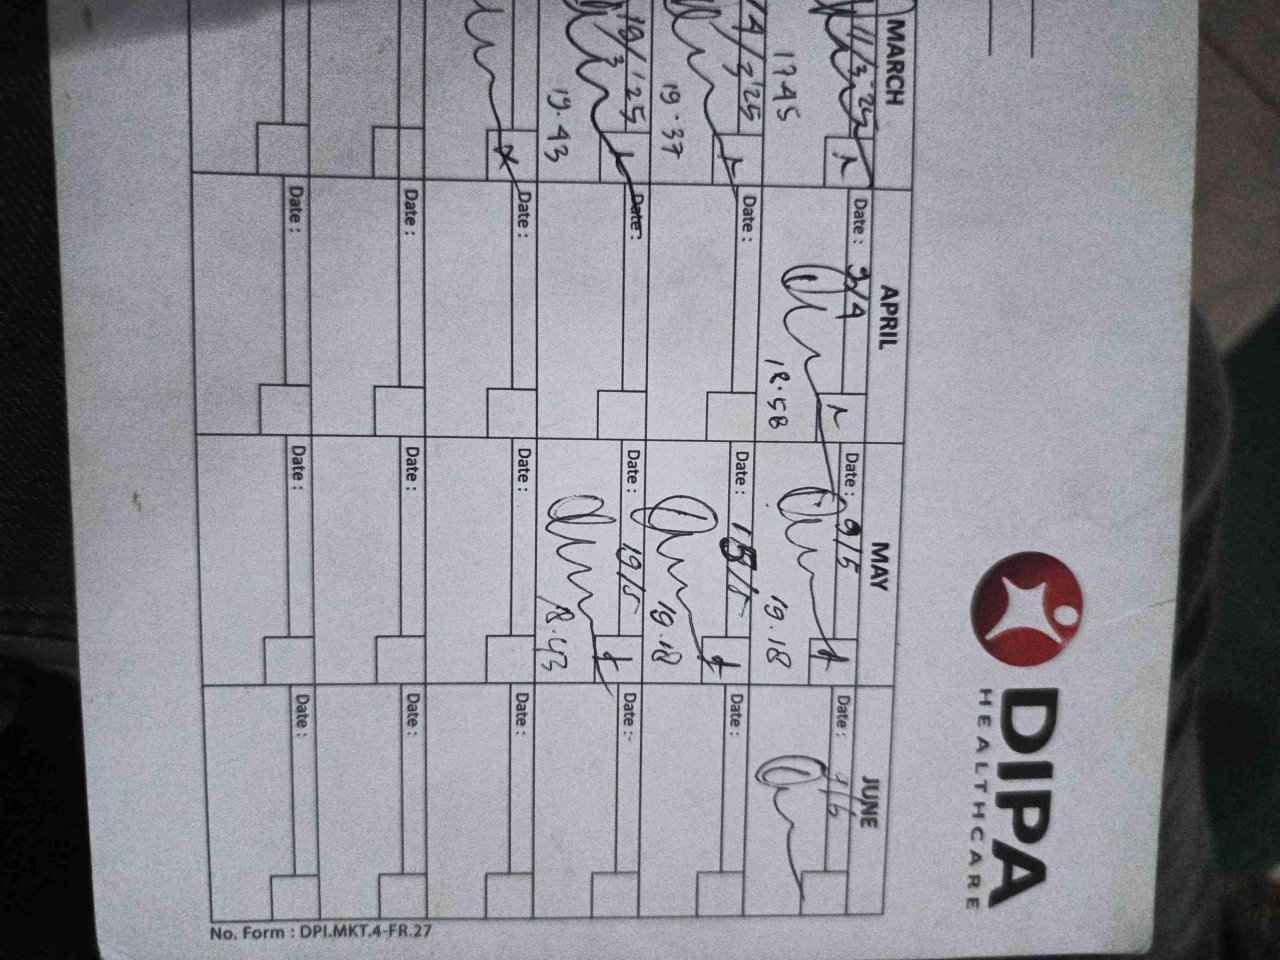 DIPA
HEALTHCARE
MARCH APRIL MAY JUNE
11/3 '25 Date : 9/4 Date : 9/5 Date : /6
17.45 18.58 19.18
14/3 '25 Date : Date : 15/5 Date :
19.37 19.18
19/3 '25 Date : Date : 19/5 Date :-
19.43 18.43
Date : Date : Date :
Date : Date : Date :
Date : Date : Date :
No. Form : DPI.MKT.4-FR.27